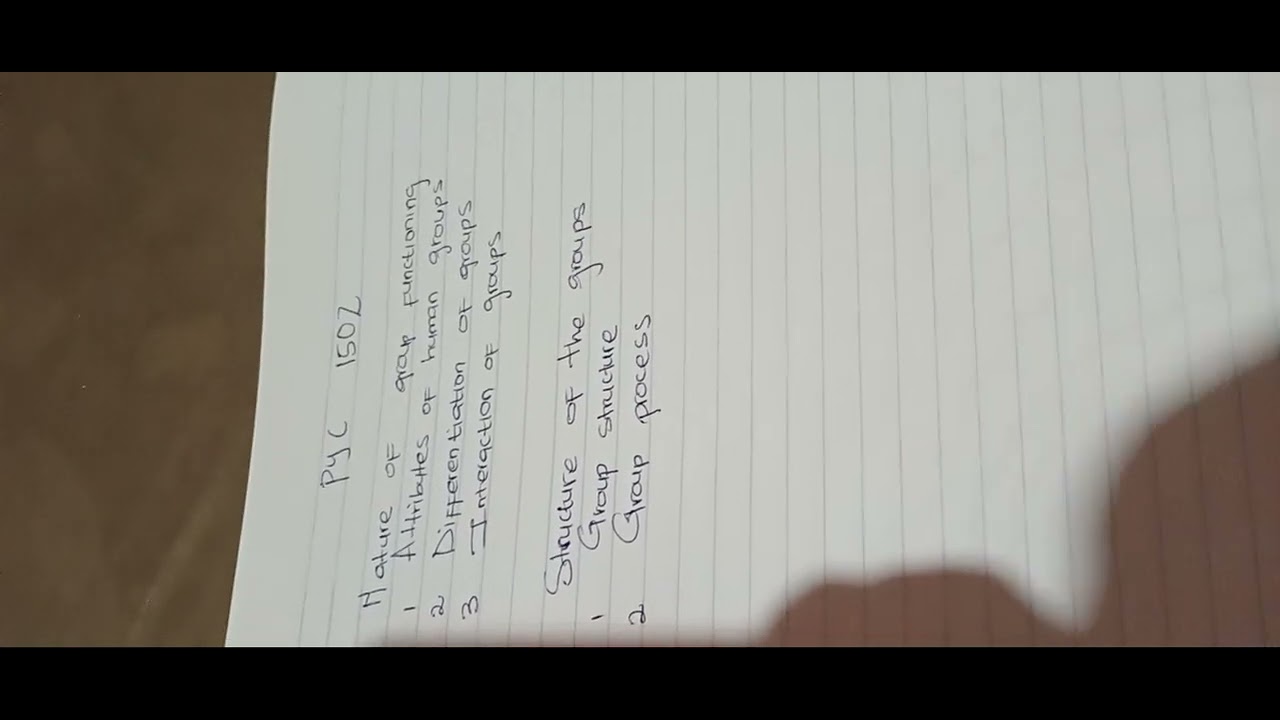 PYC 1502
Nature of group functioning
1 Attributes of human groups
2 Differentiation of groups
3 Interaction of groups
Structure of the groups
1 Group structure
2 Group process